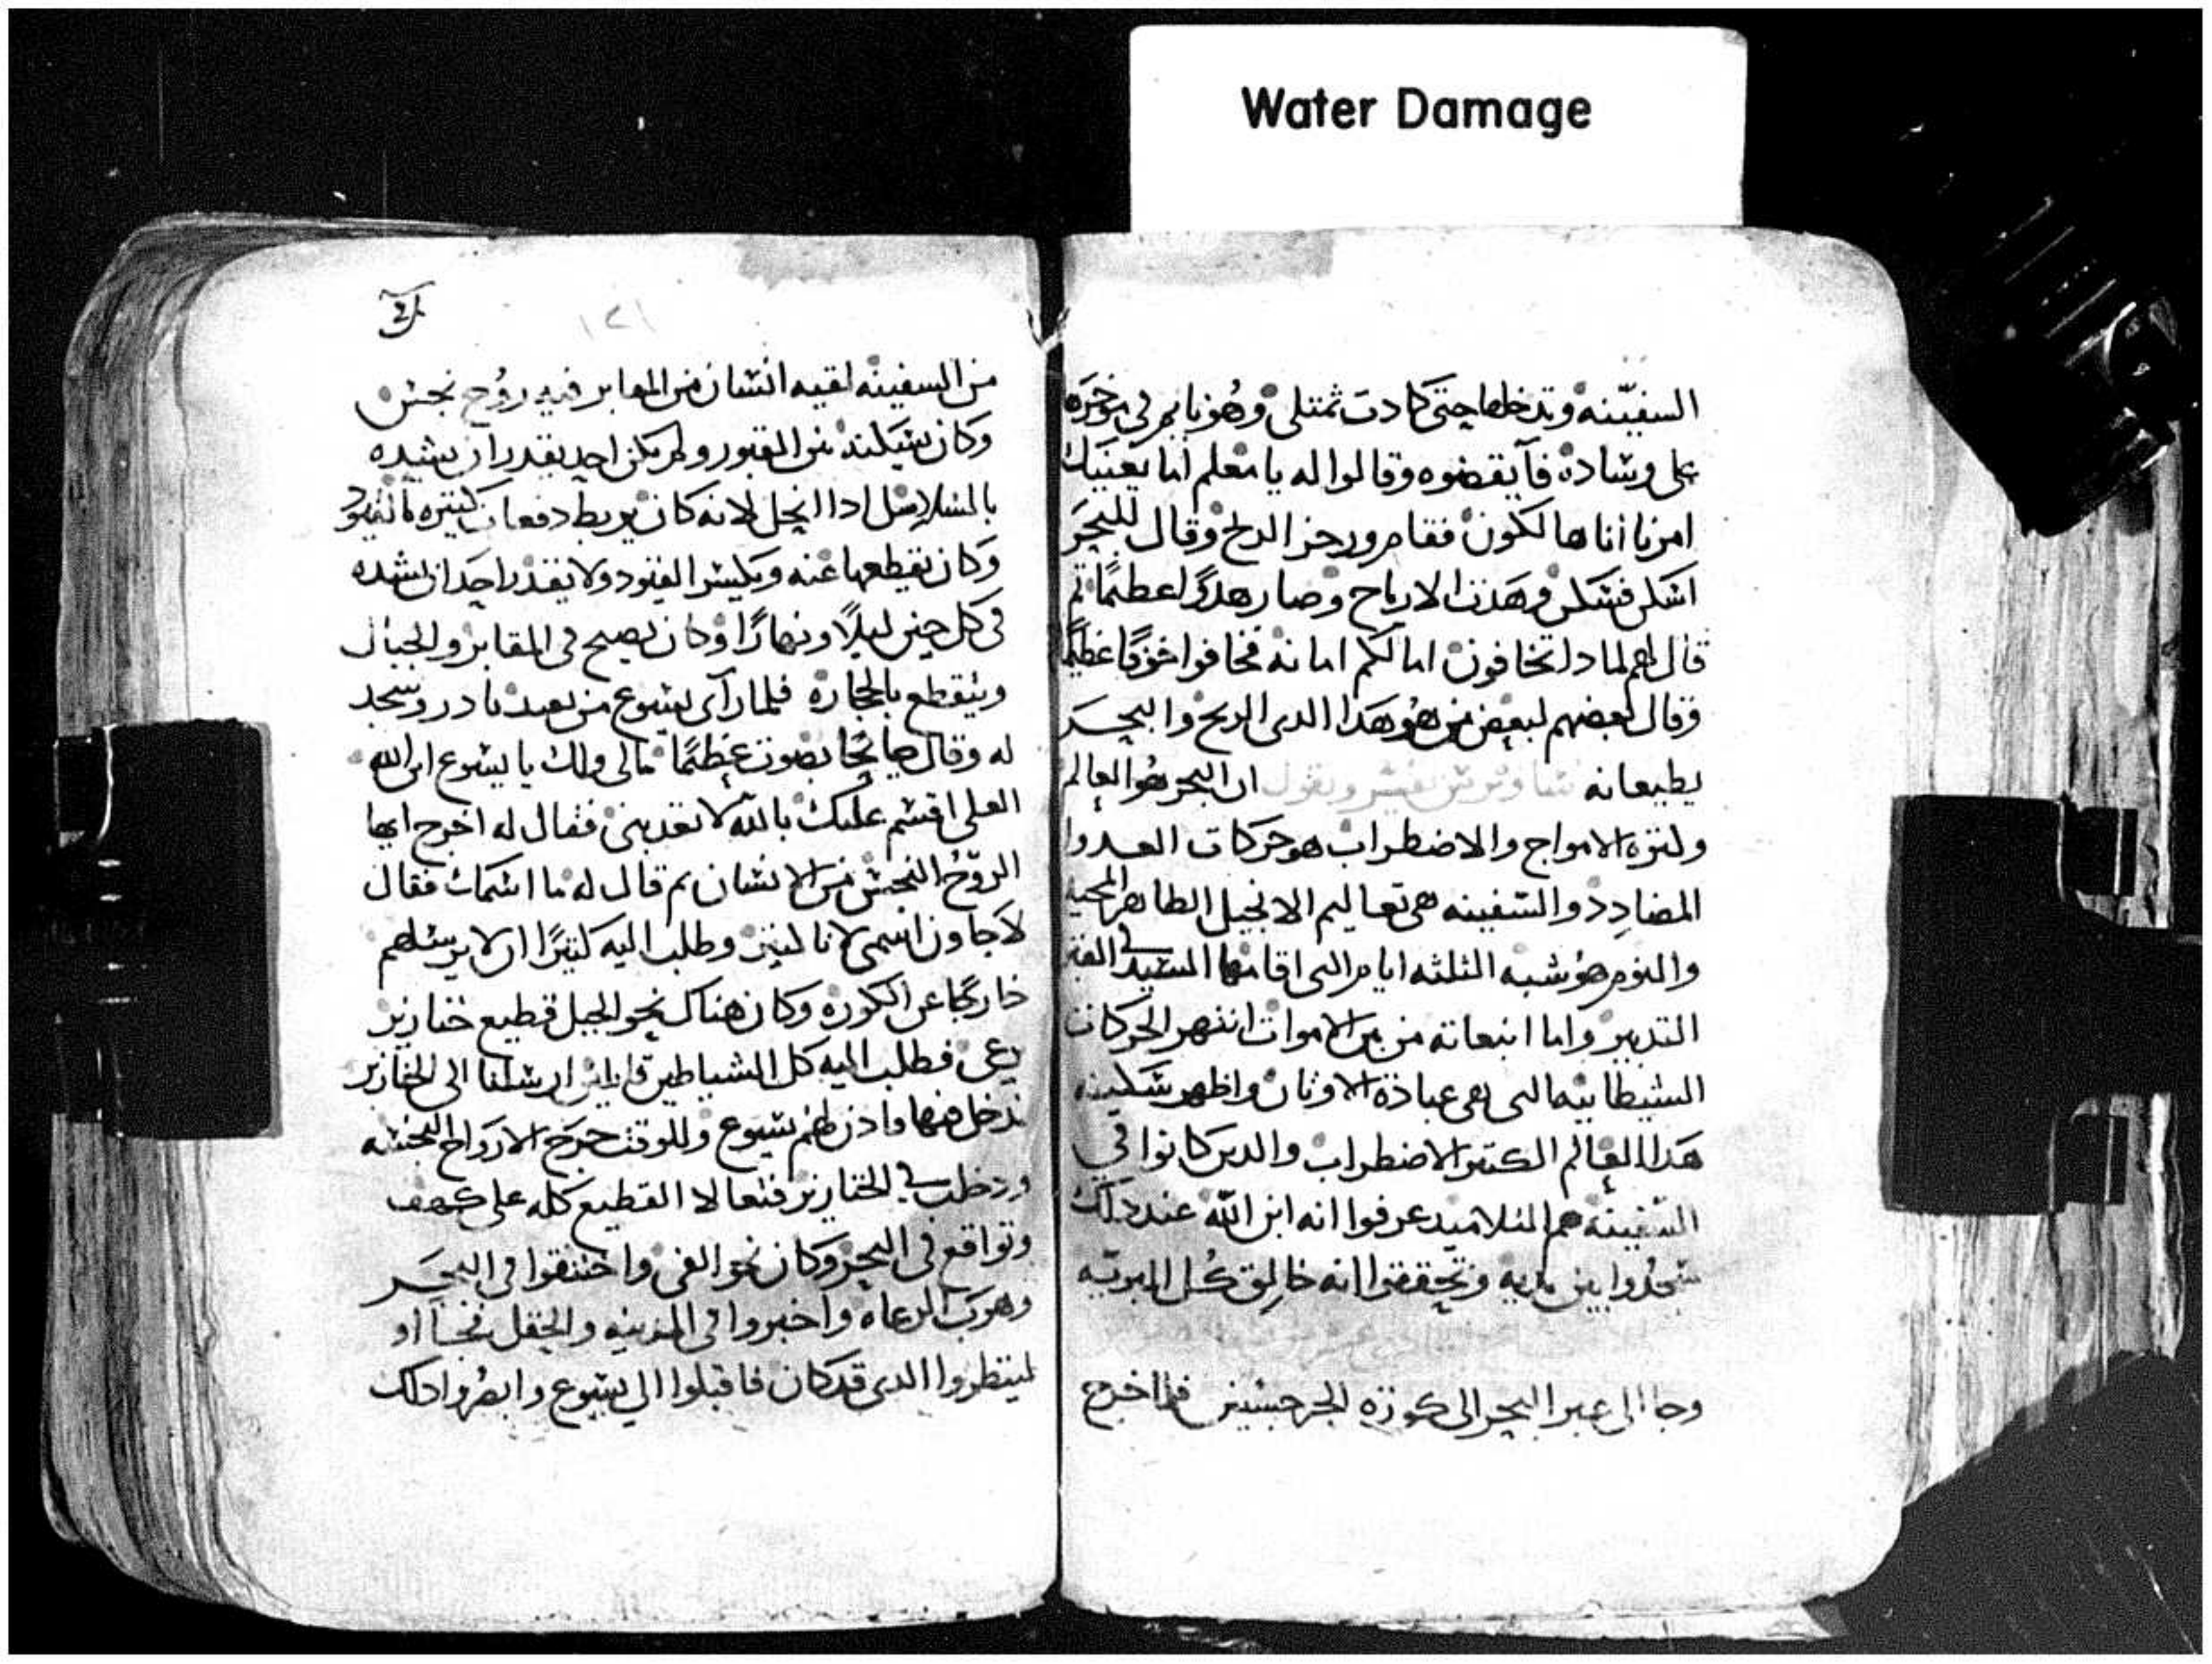 Water Damage
السفينه وتدخلها حتى كادت تمتلى وهو نايم في موخره
على وسادة فآيقضوه وقالوا له يا معلم اما يعنيك
امرنا اننا هالكون فقام وزجر الريح وقال للبحر
اسكن فسكن وهدت الارياح وصار هدوًا عظيمًا تم
قال لهم لمادا تخافون اما لكم امانه فخافوا خوفًا عظيمًا
وقال بعضهم لبعض من هو هدا الدي الريح والبحر
يطيعانه يفسر ويقول ان البحر هو العالم
وكتره الامواج والاضطراب هو حركات العدوا
المضادد والسفينه هى تعاليم الانجيل الطاهر المحيه
والنوم هو شبه الثلثه ايام التى اقامها السيد في القبر
التدبير واما انبعاته من بين الاموات انتهر الحركات
الشيطانيه التى هى عبادة الاوثان واظهر سكينه
هدا العالم الكتير الاضطراب والدين كانوا في
السفينه هم التلاميد عرفوا انه ابن الله عند دلك
سجدوا بين يديه وتحققوا انه خالق كل البريه
وجا الى عبر البحر الى كورة الجرجسيين فلما خرج
١٢١
من السفينه لقيه انسان من المقابر فيه روح نجس
وكان يسكن في القبور ولم يكن احد يقدر ان يشده
بالسلاسل ادا انحل لانه كان يربط دفعات كتيره بالقيود
وكان يقطعها عنه ويكسر القيود ولا يقدر احد ان يشده
في كل حين ليلًا ونهارًا وكان يصيح في المقابر والجبال
ويتقطع بالحجارة فلما رآى يسوع من بعيد بادر وسجد
له وقال صايحًا بصوت عظيمًا مالى ولك يا يسوع ابن الله
العلى اقسم عليك بالله لا تعدبنى فقال له اخرج ايها
الروح النجس من الانسان تم قال له ما اسمك فقال
لاجاون اسمى لانا كتير وطلب اليه كتيرًا ان لا يرسلهم
خارجًا عن الكورة وكان هناك نحو الجبل قطيع خنازير
يرعى فطلب اليه كل الشياطين قايلين ارسلنا الى الخنازير
ندخل فيها فادن لهم يسوع وللوقت خرج الارواح النجسه
ودخلت في الخنازير فتعالا القطيع كله على كهف
وتواقع في البحر وكان نحو الفى واختنقوا في البحر
وهرب الرعاه واخبروا في المدينه والحقل فجآاو
لينظروا الدى قد كان فاقبلوا الى يسوع وابصروا دلك